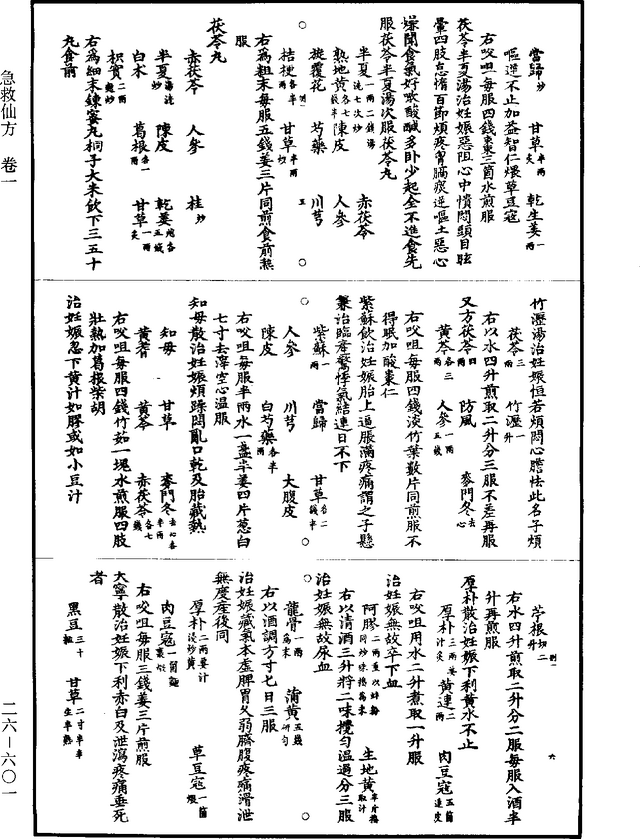 急救仙方　卷一
當歸炒　甘草半兩炙　乾生姜一兩
嘔逆不止加益智仁煨草豆蔻
右㕮咀每服四錢棗三箇水煎服
茯苓半夏湯治妊娠惡阻心中憒悶頭目眩
暈四肢怠惰百節煩疼胷膈痰逆嘔吐惡心
燥聞食氣好啖酸鹹多卧少起全不進食先
服茯苓半夏湯次服茯苓丸
半夏一兩二錢湯洗七次炒　赤茯苓
熟地黄各七錢半　陳皮　人參
旋覆花　芍藥　川芎
桔梗各半兩　甘草半兩切
右爲粗末每服五錢姜三片同煎食前熱
服
茯苓丸
赤茯苓　人參　桂炒
半夏湯洗炒　陳皮　乾姜炮各五錢
白术　葛根各一兩　甘草一兩炙
枳實二兩麩炒
右爲細末鍊蜜丸桐子大米飲下三五十
丸食前
竹瀝湯治妊娠恒若煩悶心膽怯此名子煩
茯苓三兩　竹瀝一升
右以水四升煎取二升分三服不差再服
又方茯苓四兩　防風　麥門冬去心
黄芩各三兩　人參一兩五錢
右㕮咀每服四錢淡竹葉數片同煎服不
得眠加酸棗仁
紫蘇飲治妊娠胎上逼脹滿疼痛謂之子懸
兼治臨產驚悸氣結連日不下
紫蘇一兩　當歸　甘草各二錢半
人參　川芎　大腹皮
陳皮　白芍藥各半兩
右㕮咀每服半兩水一盞半姜四片葱白
七寸去滓空心温服
知母散治妊娠煩躁悶亂口乾及胎藏熱
知母　甘草　麥門冬去心各半兩
黄芪　黄芩　赤茯苓各七錢
右㕮咀每服四錢竹茹一塊水煎服四肢
壯熱加葛根柴胡
治妊娠忽下黄汁如膠或如小豆汁
苧根切二升
右水四升煎取二升分二服每服入酒半
升再煎服
厚朴散治妊娠下利黄水不止
厚朴三兩姜汁炙　黄連二兩　肉豆蔻五箇連皮
右㕮咀用水二升煮取一升服
治妊娠無故卒下血
阿膠二兩　生地黄半斤搗取汁
右以清酒三升將二味攪勻温過分三服
治妊娠無故尿血
龍骨一兩爲末　蒲黄五錢研勻
右以酒調方寸七日三服
治妊娠藏氣本虛脾胃久弱臍腹疼痛滑泄
無度産後同
厚朴二兩姜汁浸炒黄　草豆蔻一箇煨
肉豆蔻一箇麵裹煨
右㕮咀每服三錢姜三片煎服
大寧散治妊娠下利赤白及泄瀉疼痛垂死
者
黑豆三十粒　甘草二寸半半生半熟
二六—六〇一